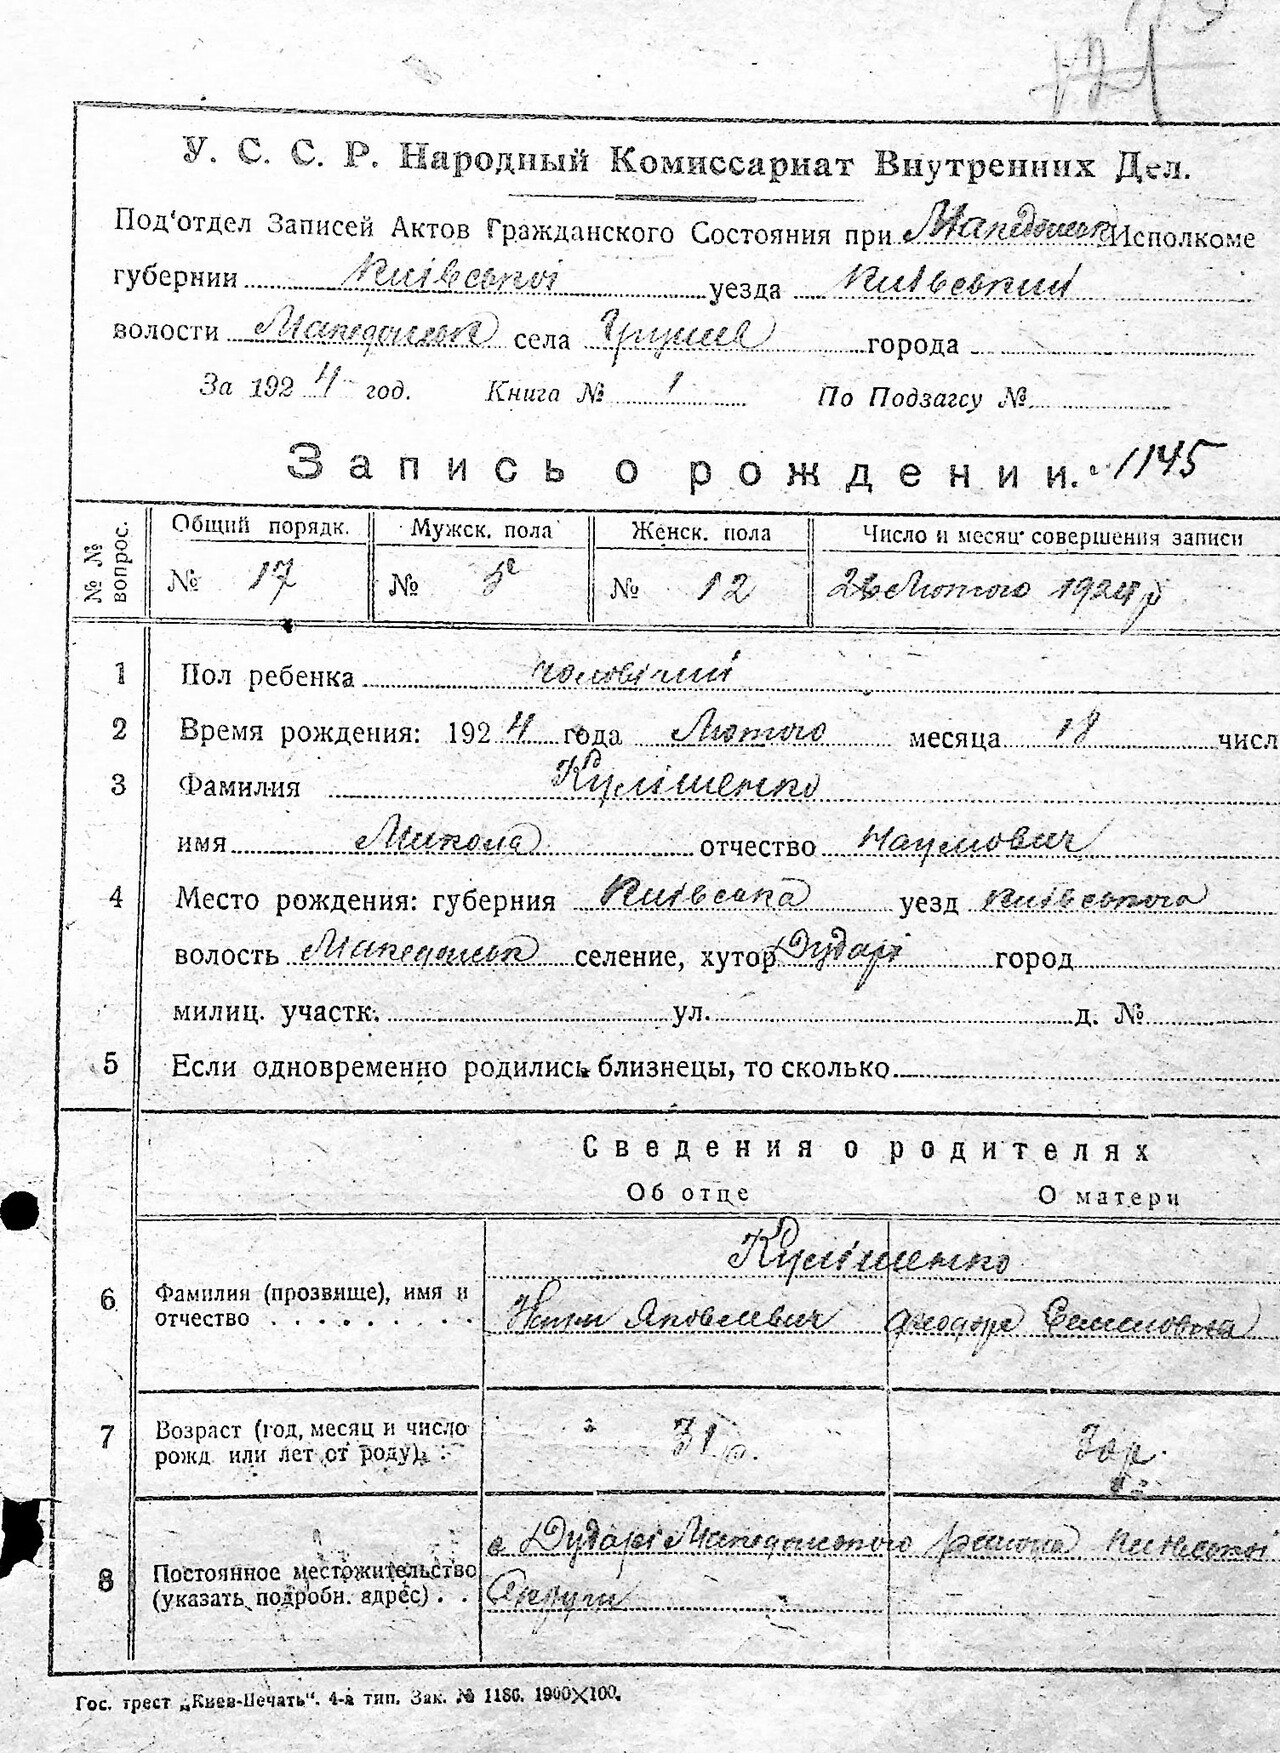 171
У. С. С. Р. Народный Комиссариат Внутренних Дел.
Под'отдел Записей Актов Гражданского Состояния при Македонськ Исполкоме
губернии Київської уезда Київський
волости Македонськ села Грушів города
За 1924 год. Книга № 1 По Подзагсу №
Запись о рождении. 1145
№ № вопрос. Общий порядк. Мужск. пола Женск. пола Число и месяц совершения записи
№ 17 № 5 № 12 Лютого 1924 р
1 Пол ребенка чоловічий
2 Время рождения: 1924 года Лютого месяца 18 числ
3 Фамилия Кулішенко
имя Микола отчество Наумович
4 Место рождения: губерния Київська уезд Київського
волость Македонськ селение, хутор Дударі город
милиц. участк. ул. д. №
5 Если одновременно родились близнецы, то сколько
Сведения о родителях
Об отце О матери
Кулішенко
6 Фамилия (прозвище), имя и
отчество . . . . . . . . . Наум Яковлевич Феодора Семеновна
7 Возраст (год, месяц и число
рожд или лет от роду). . 31 р. 30 р.
8 Постоянное местожительство
(указать подробн. адрес) . . с Дударі Македонського района Київської
Округи
Гос. трест „Киев-Печать“. 4-я тип. Зак. № 1186. 1900X100.